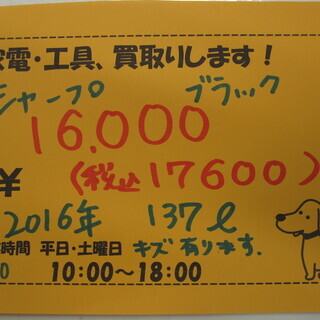 家電・工具、買取りします！
シャープ ブラック
16.000
¥ (税込17600)
2016年 137ℓ
時間 平日・土曜日 キズあります.
0 10:00～18:00